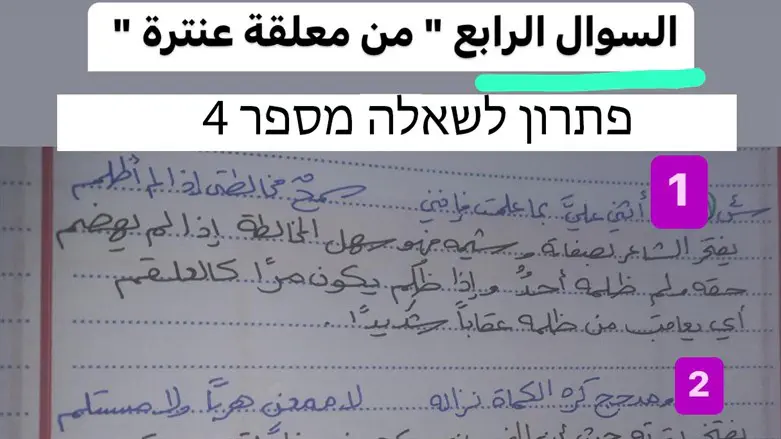 السوال الرابع " من معلقة عنترة "
פתרון לשאלה מספר 4
1
أثني عليّ بما علمت فإنني سمح مخالطتي إذا لم أظلم
يفتخر الشاعر بصفاته وشيمه فهو سهل المخالطة إذا لم يهضم
حقه ولم ظلمه أحدٌ وإذا ظُلم يكون مرًا كالعلقم
أي يعاقب من ظلمه عقاباً شديدًا.
2
ومدجج كره الكماة نزاله لا ممعن هربًا ولا مستسلم